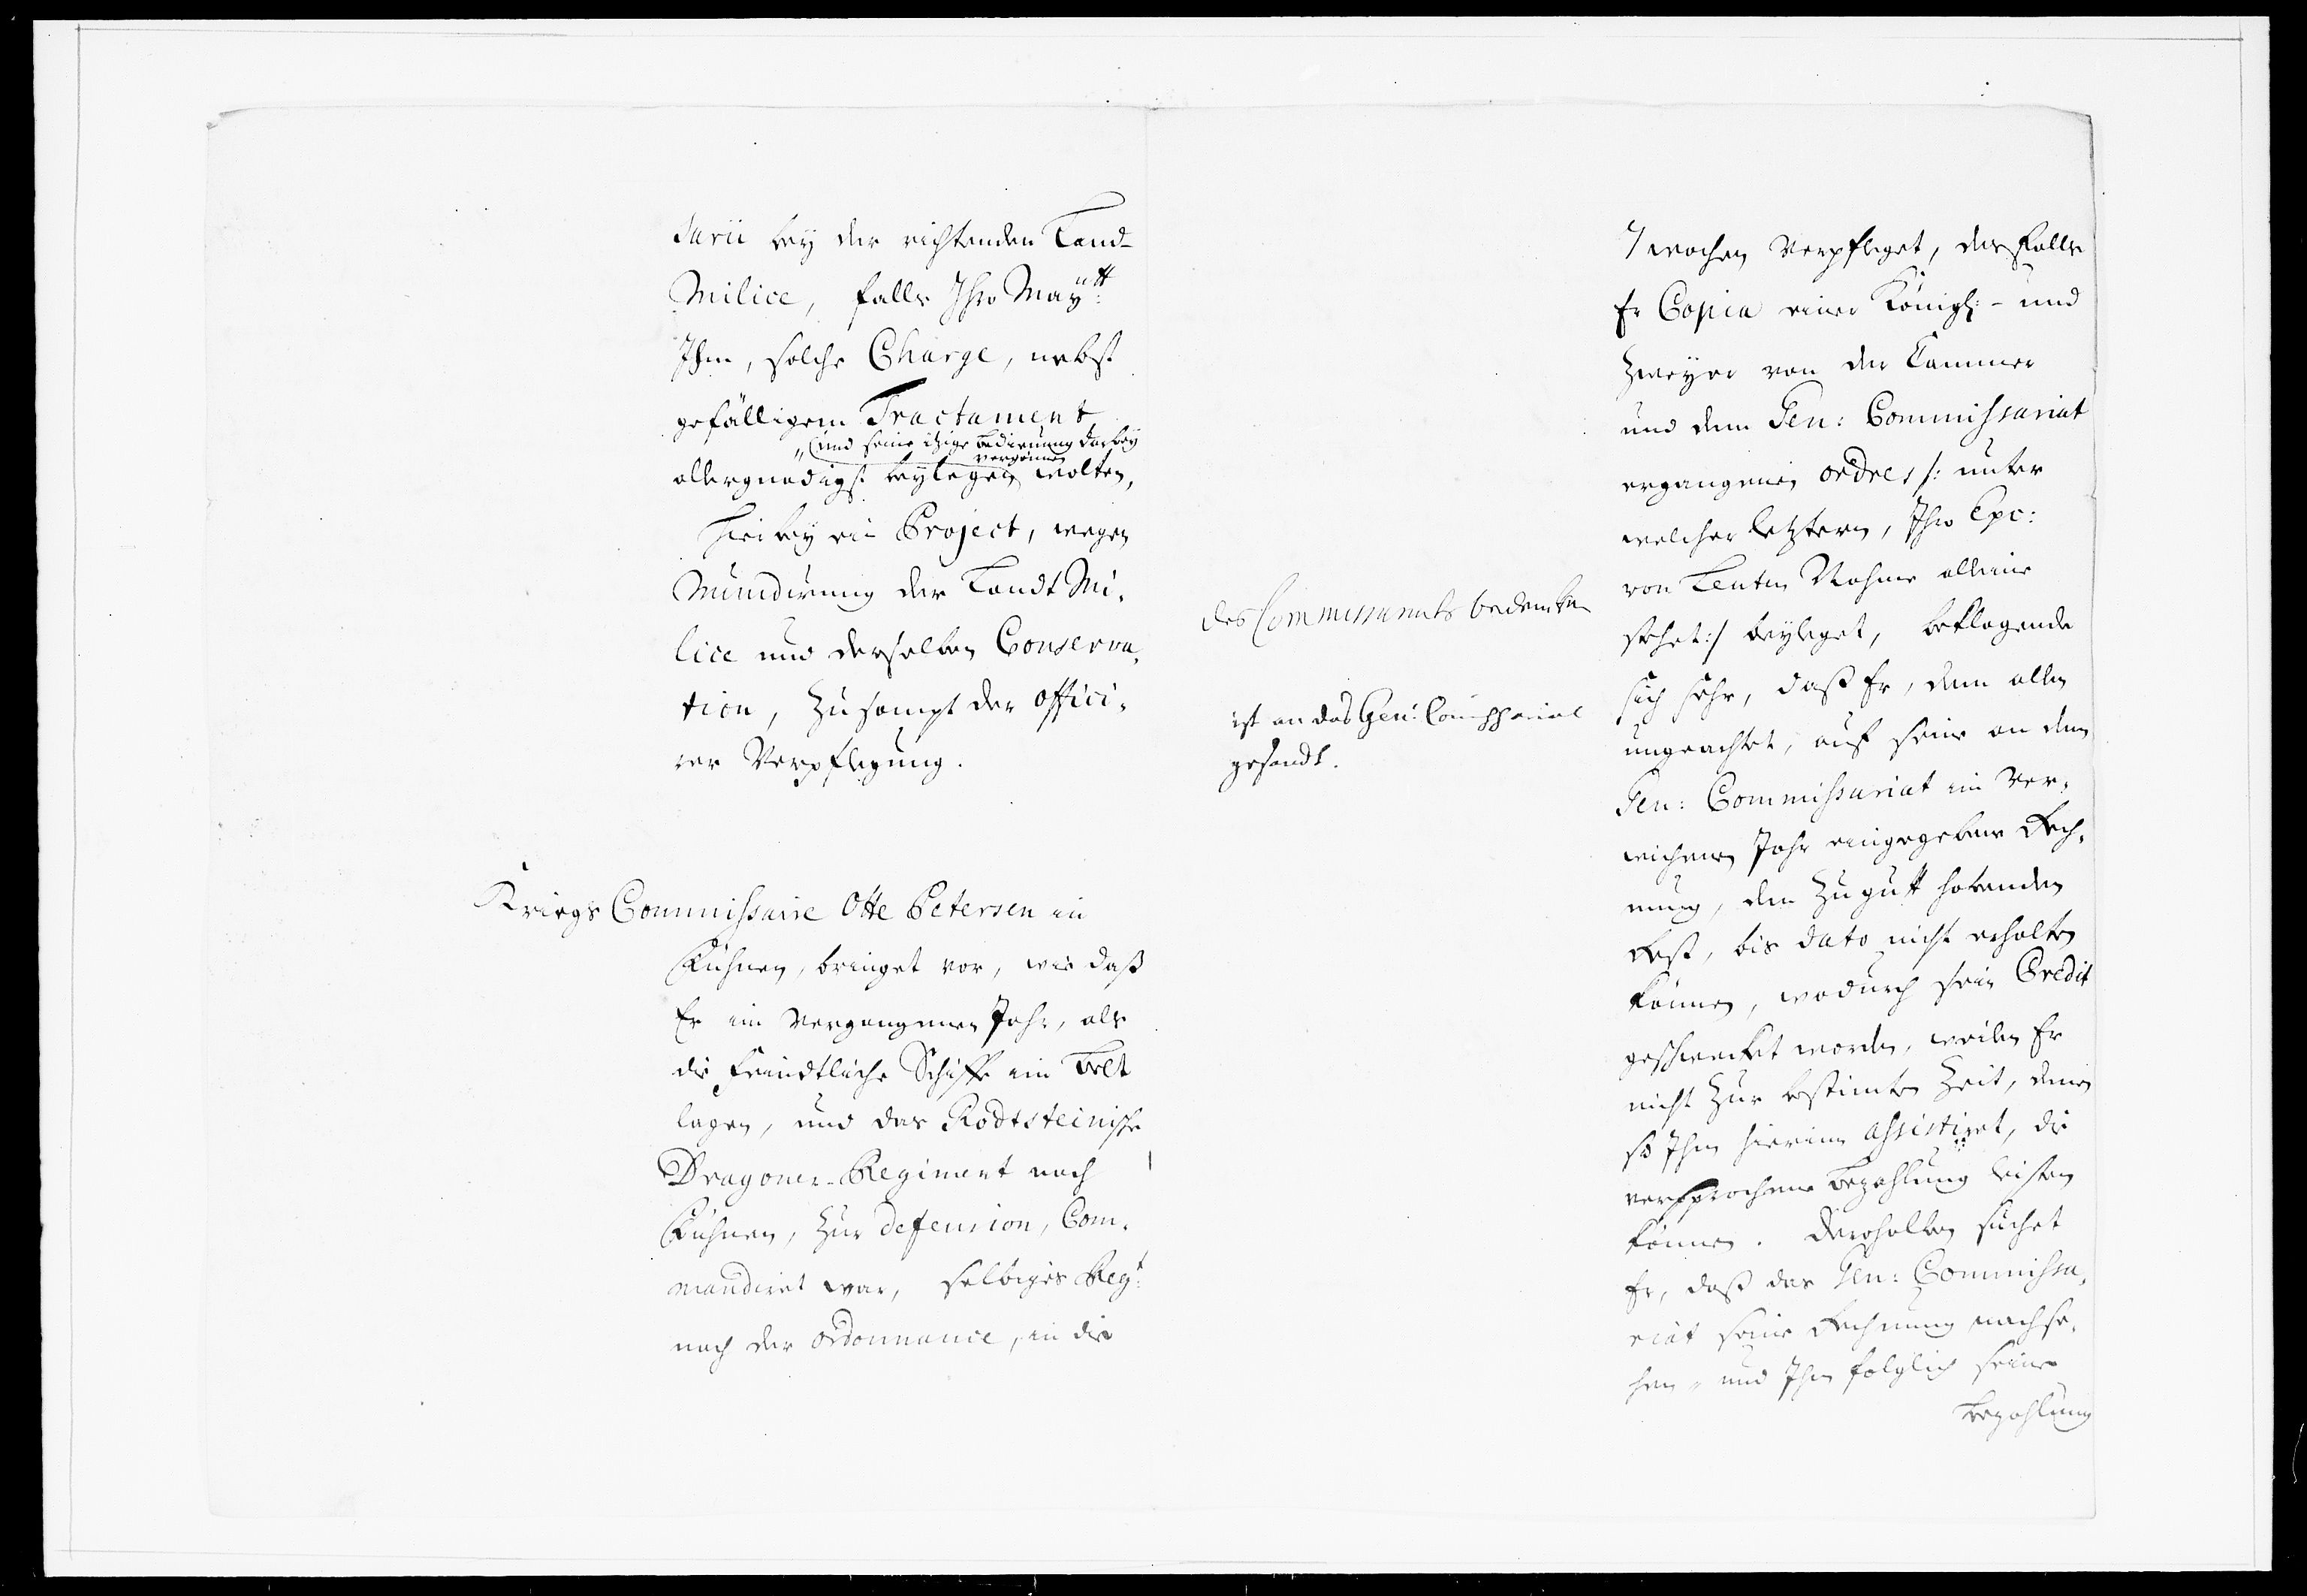 darii bey der richtenden Land-
Milice, falls Ihro Maytt:
Ihm, solche Charge, nebst
gefälligem Tractament
(und seine itzige bedienung darbey
vergönnen
allergnädigst beylegen wolten,
Hierbey ein Project, wegen
Mundirung der Landt Mi-
lice und derselben Conserva-
tion, zusampt der Offici-
rer Verpflegung.
Kriegs Commissarie Otte Petersen in
Fühnen, bringet vor, wie daß
Er im Vergangenen Jahr, als
die Feindtliche Schiffe im Belt
lagen, und das Rodtsteinische
Dragoner-Regiment nach
Fühnen, zur defension, Com-
mandiret war, selbiges Regt:
nach der Ordonnance, in die
des Commissariats bedencken
ist an das Gen: Commissariat
gesandt.
7 wochen Verpfleget, desfalls
Er Copia einer Königl: - und
zweyer von der Cammer
und dem Gen: Commissariat
ergangenen ordres /: unter
welcher letztern, Ihro Exc:
von Lenten Nahme alleine
stehet :/ beyleget, beklagende
sich sehr, daß Er, dem allen
ungeachtet, auf seine an dem
Gen: Commissariat im Ver-
wichenen Jahr eingegebene Rech-
nung, den zugutt habenden
Rest, bis dato nicht erhalten
können, wodurch sein Credit
geschwecket worden, weilen Er
nicht zur bestimten Zeit, denen
so Ihm hierinn assistiret, die
versprochene Bezahlung leisten
können. Derohalben suchet
Er, daß das Gen: Commissa-
riat seine Rechnung nachse-
hen, und Ihm folglich seine
Bezahlung